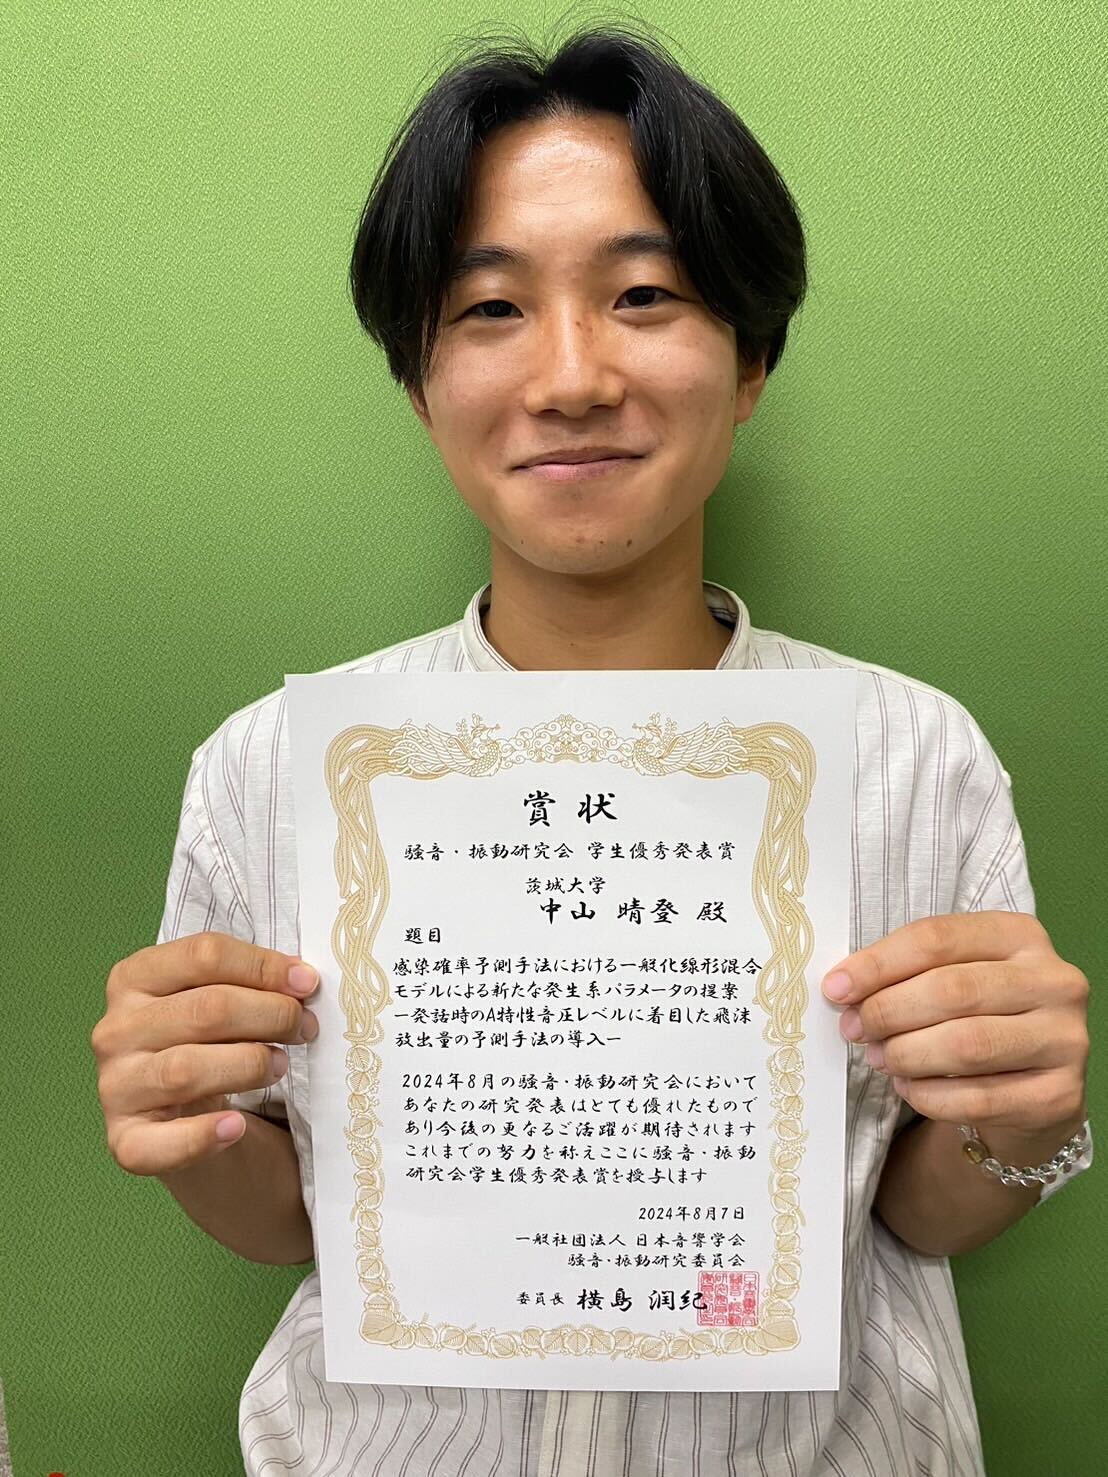 賞状
騒音・振動研究会 学生優秀発表賞
茨城大学
中山 晴登 殿
題目
感染確率予測手法における一般化線形混合
モデルによる新たな発生系パラメータの提案
ー発話時のA特性音圧レベルに着目した飛沫
放出量の予測手法の導入ー
2024年8月の騒音・振動研究会において
あなたの研究発表はとても優れたもので
あり今後の更なるご活躍が期待されます
これまでの努力を称えここに騒音・振動
研究会学生優秀発表賞を授与します
2024年8月7日
一般社団法人 日本音響学会
騒音・振動研究委員会
委員長 横島 潤紀